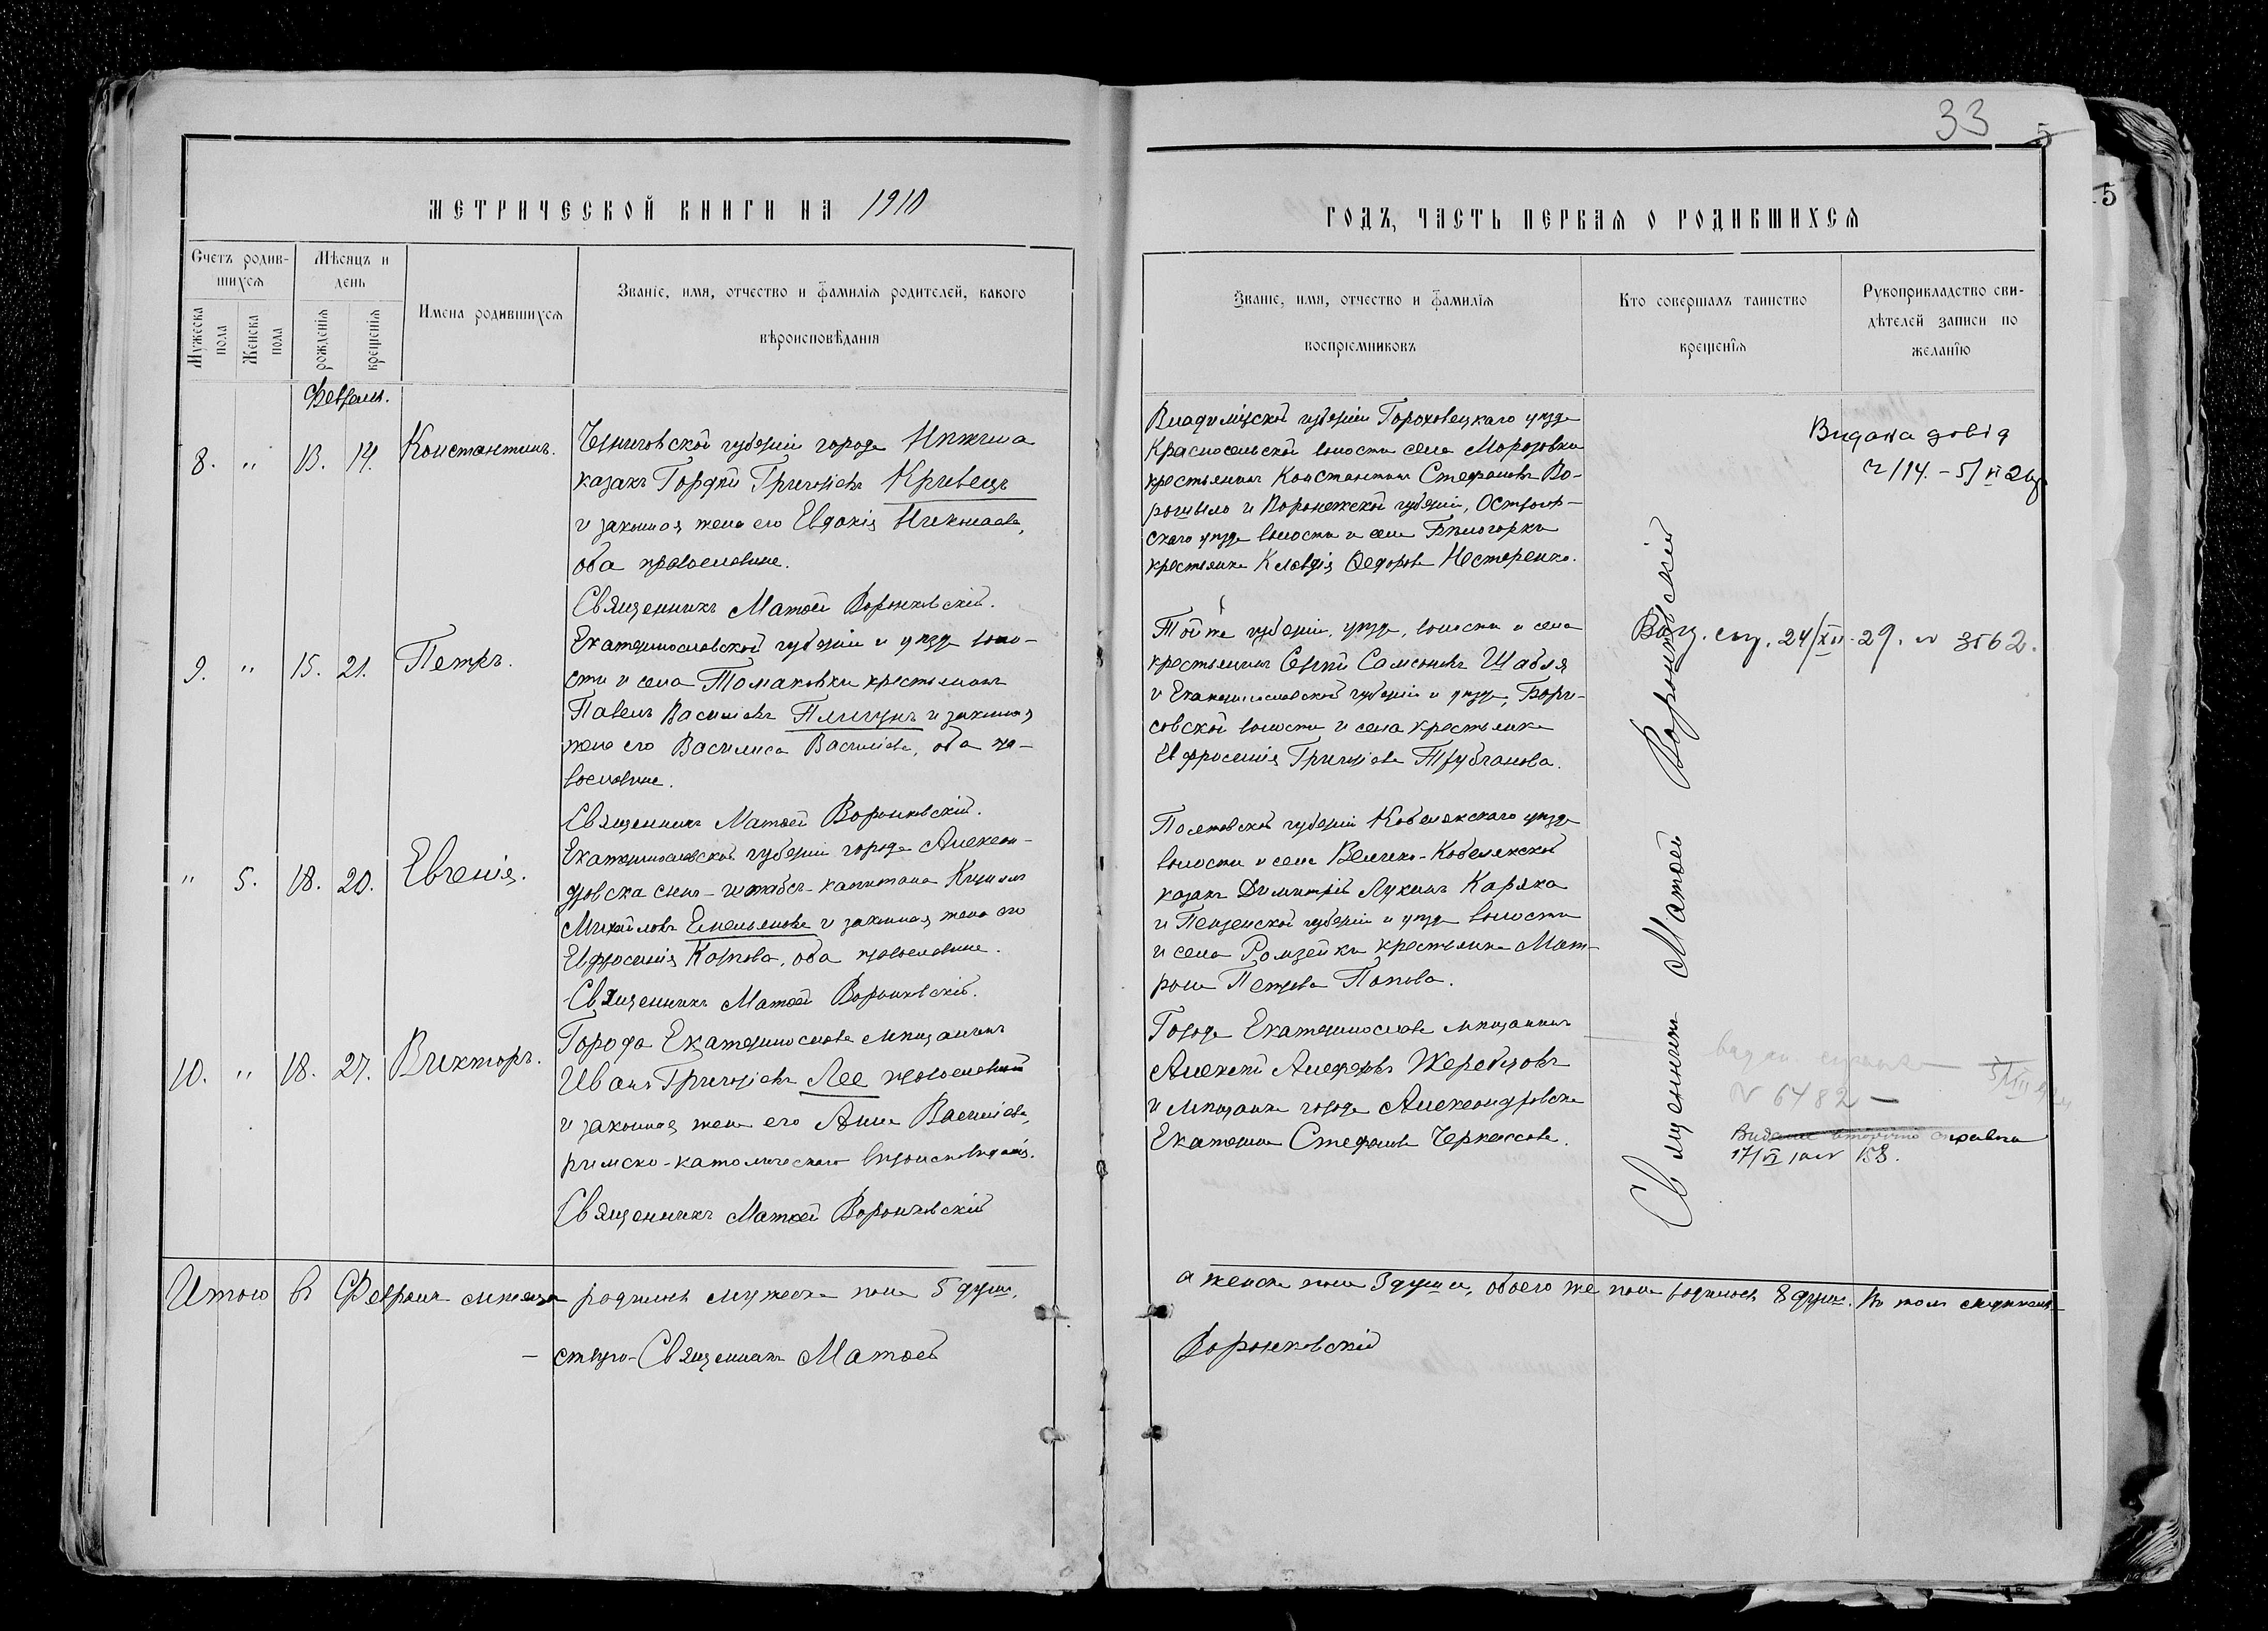 33
5
5
МЕТРИЧЕСКОЙ КНИГИ НА 1910
ГОДЪ, ЧАСТЬ ПЕРВАЯ О РОДИВШИХСЯ
Счетъ родив-
шихся
Мѣсяцъ и
день
Мужеска
пола
Женска
пола
рожденія
крещенія
Имена родившихся
Званіе, имя, отчество и фамилія родителей, какого
вѣроисповѣданія
Званіе, имя, отчество и фамилія
воспріемниковъ
Кто совершалъ таинство
крещенія
Рукоприкладство сви-
дѣтелей записи по
желанію
Февраля.
8. " 13. 14. Константинъ.
Черниговской губерніи города Нѣжина
казакъ Гордѣй Григорьевъ Кривецъ
и законная жена его Евдокія Николаева,
оба православные.
Священникъ Матѳей Воронковскій.
Владимірской губерніи Гороховецкаго уѣзда
Красносельской волости села Морозовки
крестьянинъ Константинъ Стефановъ Во-
и Воронежской губерніи, Острогож-
скаго уѣзда волости и села Бѣлогорки
крестьянка Клавдія Ѳедорова Нестеренко.
Видана довід
9. " 15. 21. Петръ.
Екатеринославской губерніи и уѣзда воло-
сти и села Томаковки крестьянинъ
Павелъ Васильевъ Плигунъ и законная
жена его Василиса Васильева, оба пра-
вославные.
Священникъ Матѳей Воронковскій.
Той же губерніи, уѣзда, волости и села
крестьянинъ Сергѣй Самсоновъ Шабля
и Екатеринославской губерніи и уѣзда, Бори-
совской волости и села крестьянка
Евфросинія Григорьева Трубчанова.
24/XII-29. № 3562.
" 5. 18. 20. Евгенія.
Екатеринославской губерніи города Алексан-
дровска сынъ-штабсъ-капитана Кириллъ
Михайловъ Емельяновъ и законная жена его
Евфросинія Карпова, оба православные.
Священникъ Матѳей Воронковскій.
Полтавской губерніи Кобелякскаго уѣзда
волости и села Велико-Кобелякской
казакъ Димитрій Лукинъ Каряка
и Пензенской губерніи и уѣзда волости
и села Рамзейки крестьянка Мат-
рона Петрова Попова.
10. " 18. 27. Викторъ.
Города Екатеринослава мѣщанинъ
Иванъ Григорьевъ Лее православный
и законная жена его Анна Васильева,
римско-католическаго вѣроисповѣданія.
Священникъ Матѳей Воронковскій
Города Екатеринослава мѣщанинъ
Алексѣй Алеферовъ Жеребцовъ
и мѣщанка города Александровска
Екатерина Стефанова Черкасова.
№ 6482 —
справка
Священникъ Матѳей Воронковскій
Итого въ Февралѣ мѣсяцѣ родилось мужеска пола 5 душъ,
а женска пола 3 души, обоего же пола родилось 8 душъ. Въ томъ свидѣтель-
ствую-Священникъ Матѳей
Воронковскій